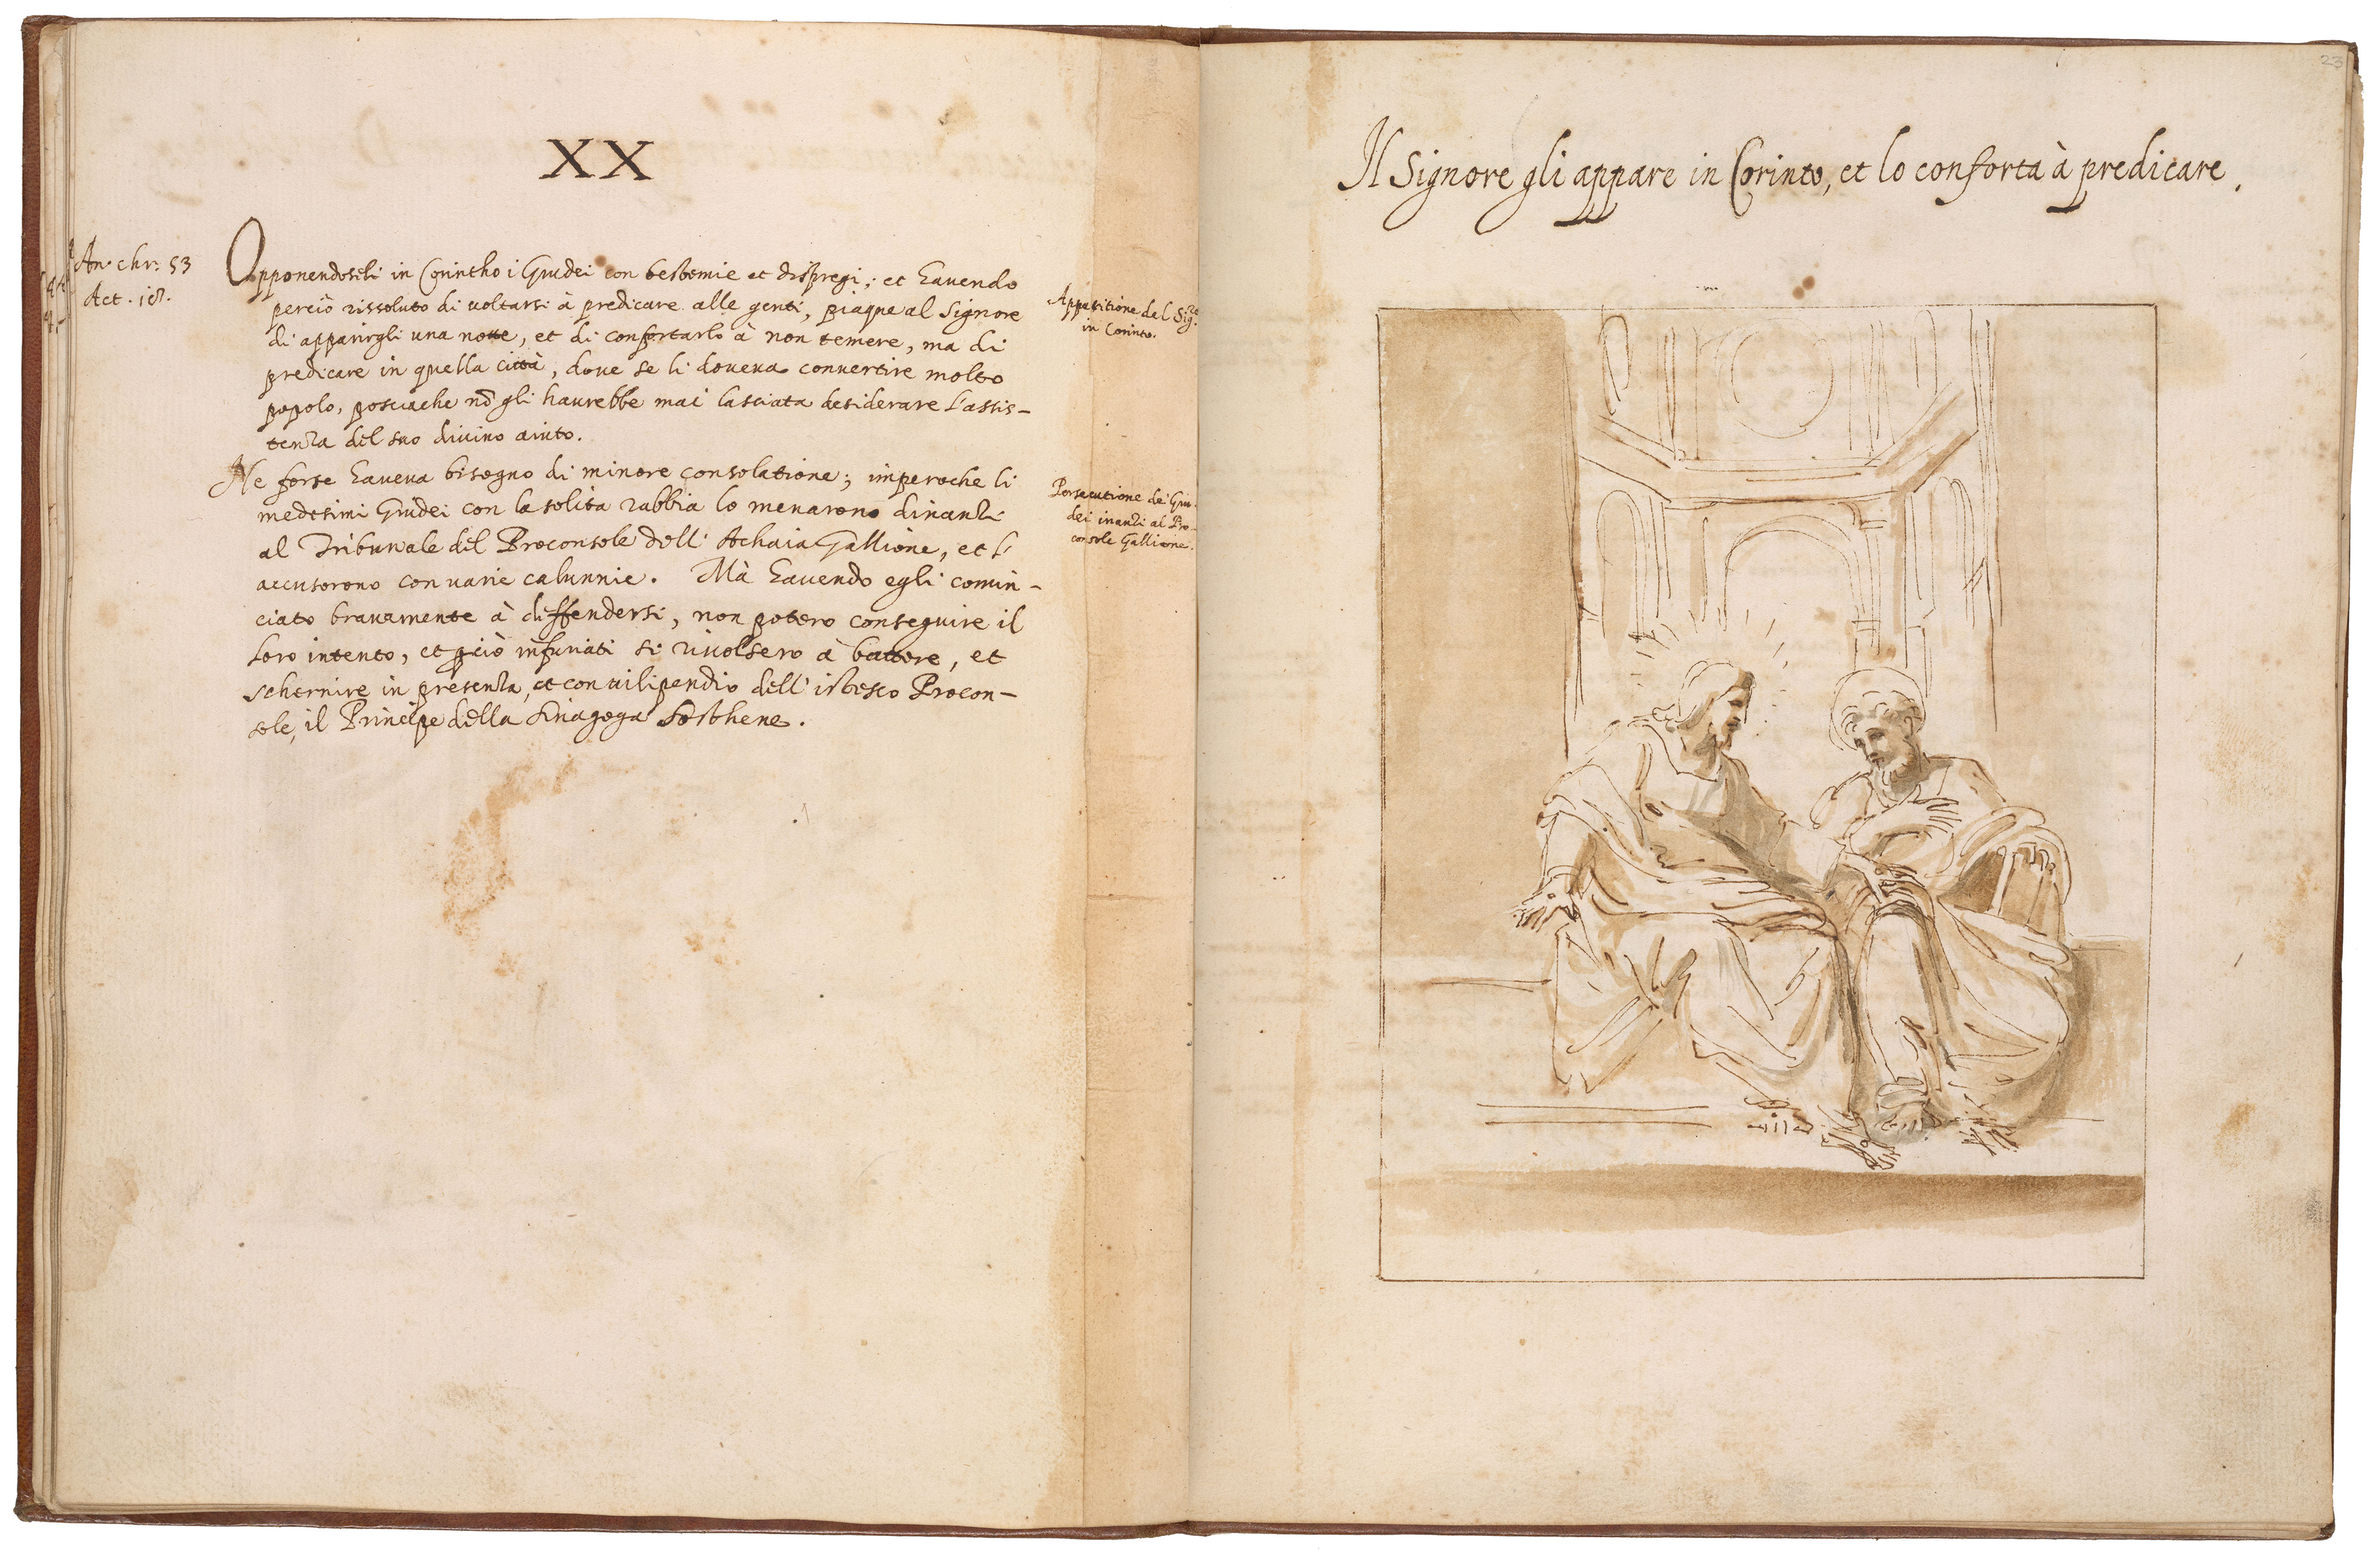 XX
An. chr. 53
Act. 18.
Opponendoseli in Corintho i Giudei con bestemie et dispregi; et havendo
perciò rissoluto di voltarsi à predicare alle genti, piaque al Signore
di apparirgli una notte, et di confortarlo à non temere, ma di
predicare in quella città, dove se li doveva convertire molto
popolo, posciache nõ gli havrebbe mai lasciata desiderare l'assis-
tenza del suo divino aiuto.
Apparitione del Sig.re
in Corinto.
Ne forse haveva bisogno di minore consolatione; imperoche li
medesimi Giudei con la solita rabbia lo menarono dinanzi
al Tribunale del Proconsole dell' Achaia Gallione, et l'
accusorono con varie calunnie. Mà havendo egli comin-
ciato bravamente à diffendersi, non potero conseguire il
loro intento, et pciò infuriati si rivolsero à battere, et
schernire in presenza, et con vilipendio dell' istesso Procon-
sole, il Principe della Sinagoga Sosthene.
Persecutione de' Giu-
dei inanzi al Pro-
console Gallione.
23
Il Signore gli appare in Corinto, et lo conforta à predicare.